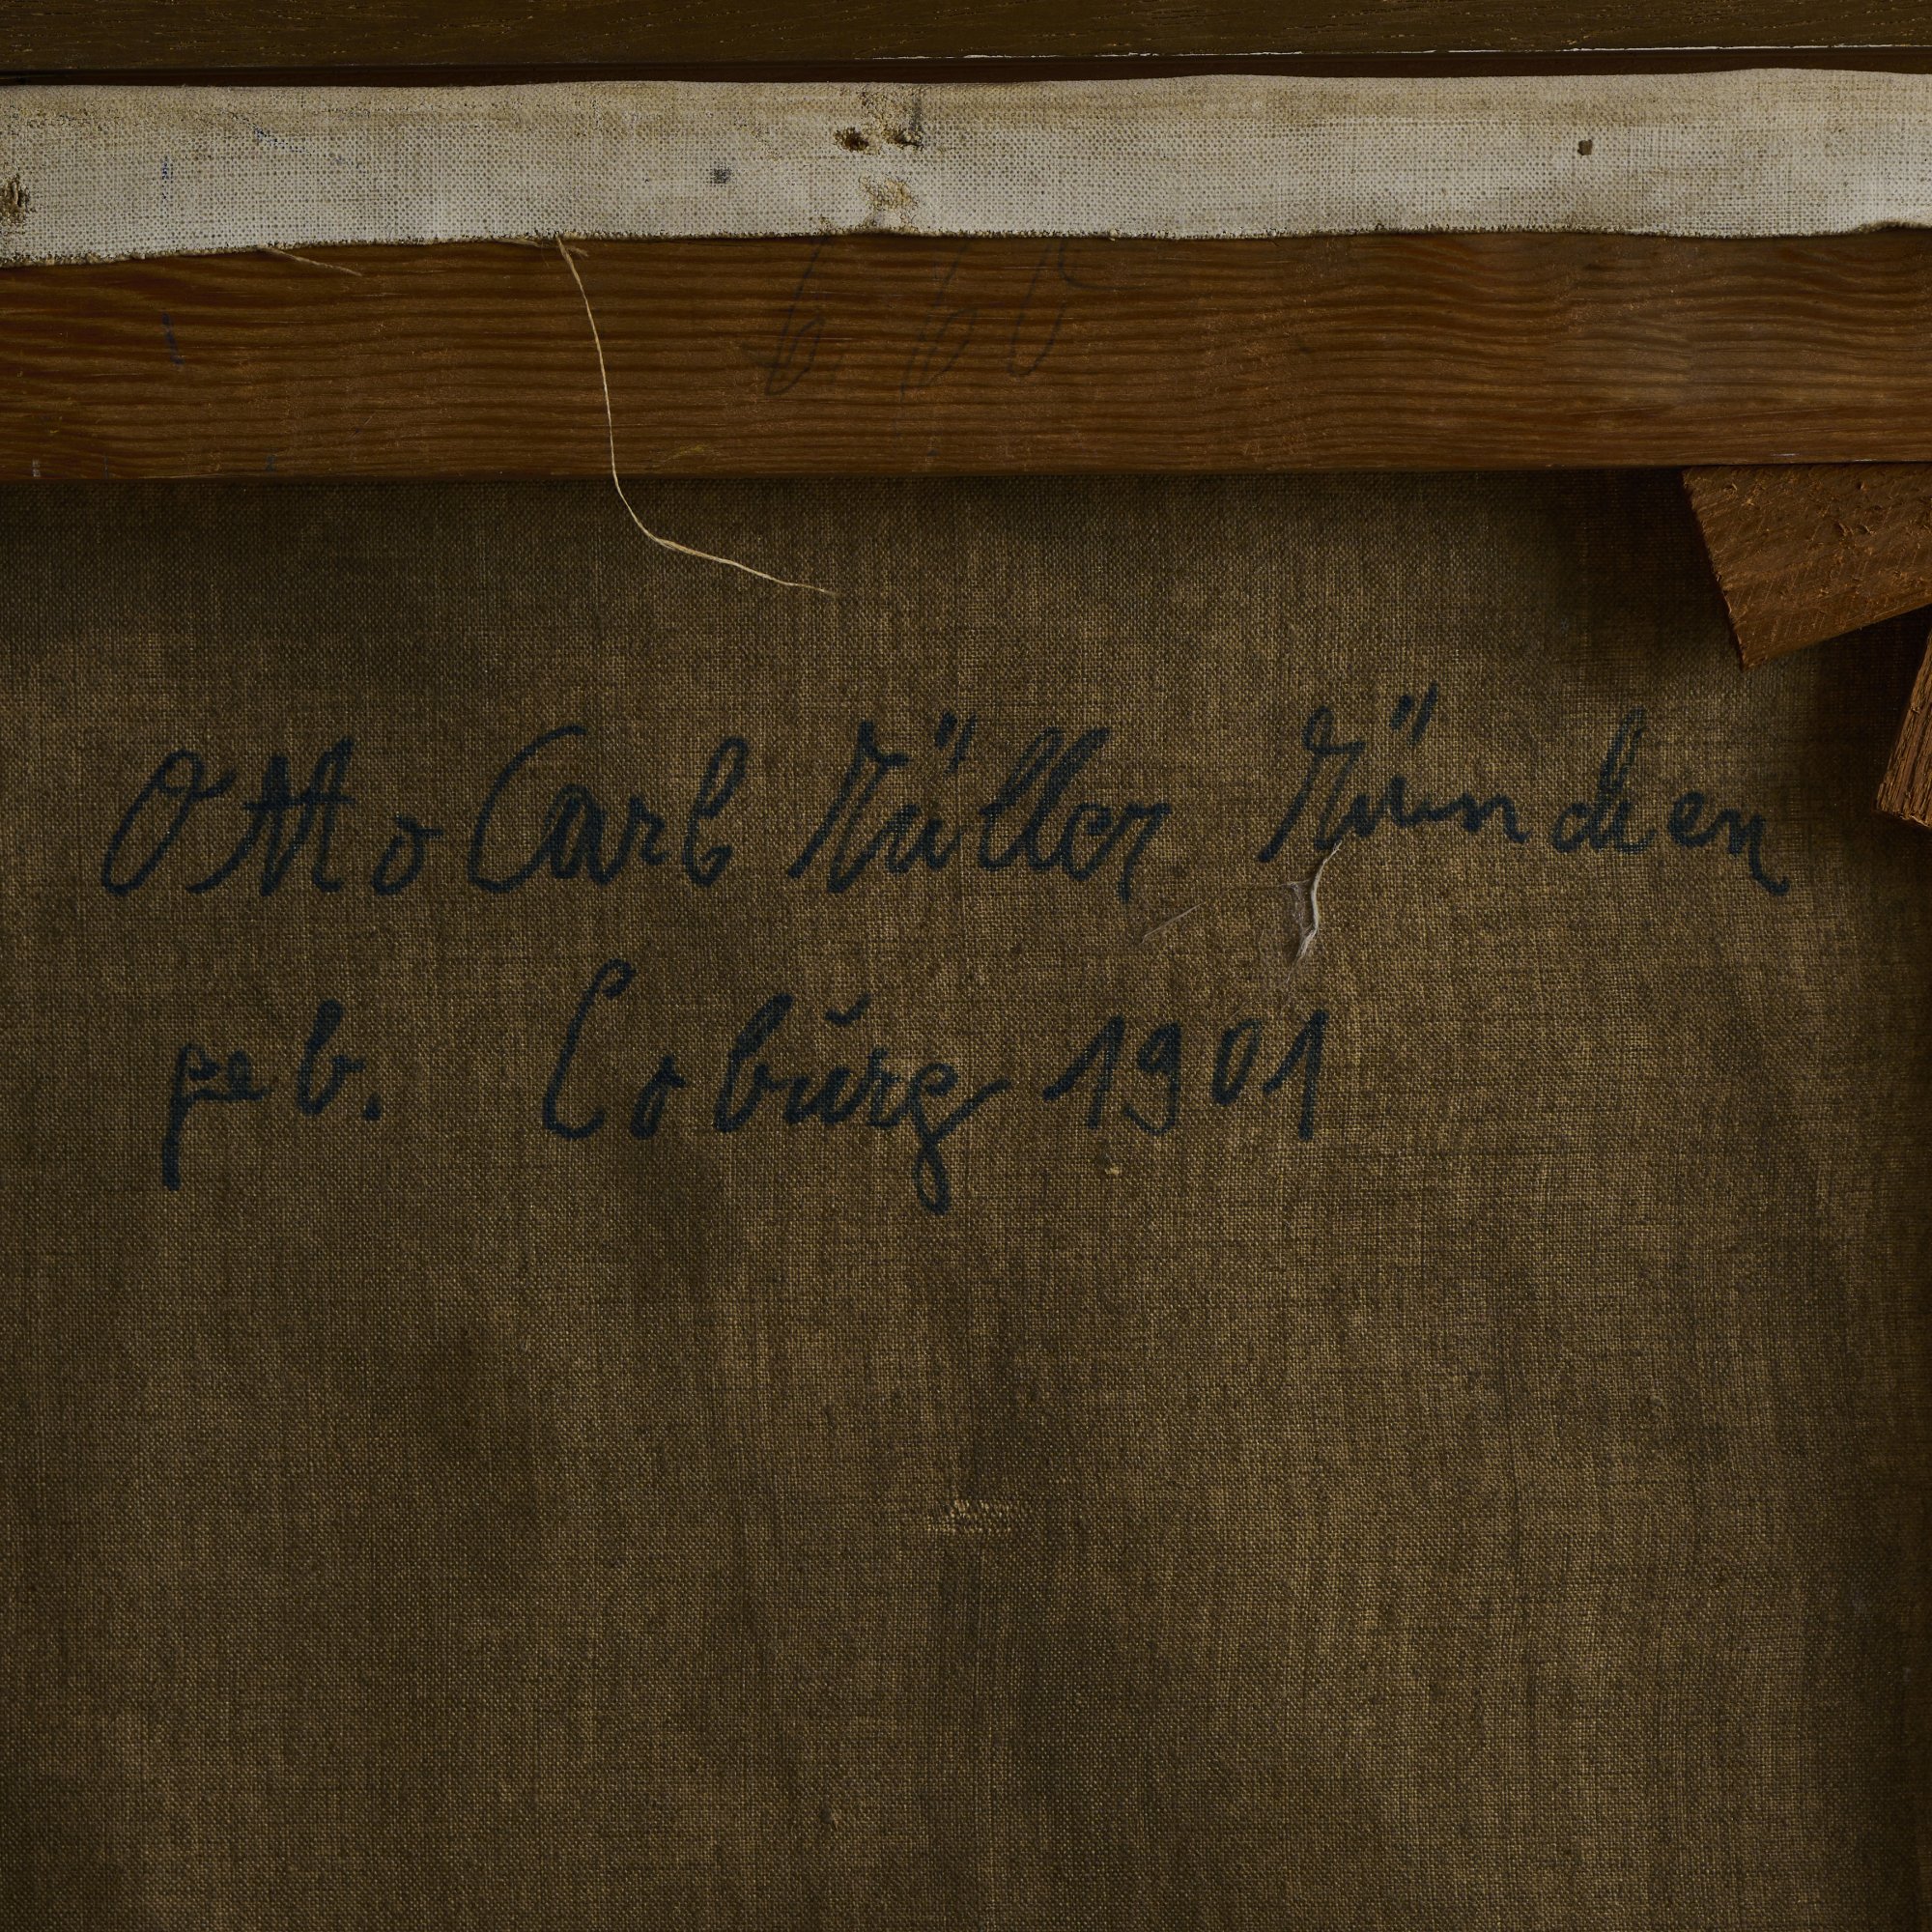 Otto Carl Müller München
geb. Coburg 1901